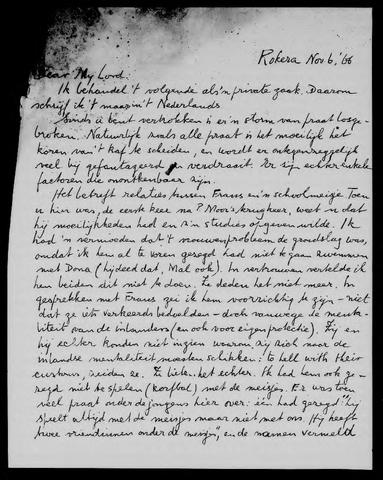 Rokera Nov 6, '66
Dear My Lord:
Ik behandel 't volgende als 'n private zaak. Daarom
schrijf ik 't maar in 't Nederlands
Sinds U bent vertrokken is er 'n storm van praat losge-
broken. Natuurlijk zoals alle praat is het moeilijk het
koren van 't kaf te scheiden, en wordt er ontzenzeggelijk
veel bij gefantaseerd en verdraait. Er zijn echter enkele
factoren die onontkenbaar zijn.
Het betreft relaties tussen Frans en 'n schoolmeisje. Toen
U hier was, de eerste keer na Moore's krugheer, weet U dat
hij moeilijkheden had en z'n studies opgeven wilde. Ik
had 'n vermoeden dat 't vrouwenprobleem de grondslag was,
omdat ik hem al te voren gezegd had niet te gaan zwemmen
met Dona (hij deed dat, Mal ook). In vertrouwen vertelde ik
hen beiden dit niet te doen. Ze deden het niet meer. In
gesprekken met Frans zei ik hem voorzichtig te zijn - niet
dat ze iets verkeerds bedoelden - doch vanwege de menta-
liteit van de inlanders (en ook voor eigen protectie). Zij en
hij echter konden niet inzien waarom zij zich naar de
inlandse mentaliteit moesten schikken: to hell with their
customs, zeiden ze. Ze lieten het echter. Ik had hem ook ge-
zegd niet te spelen (korfbal) met de meisjes. Er was toen
veel praat onder de jongens hier over: één had gezegd "hij
speelt altijd met de meisjes maar niet met ons. Hij heeft
twee vriendinnen onder de meisjes", en de namen vermeld